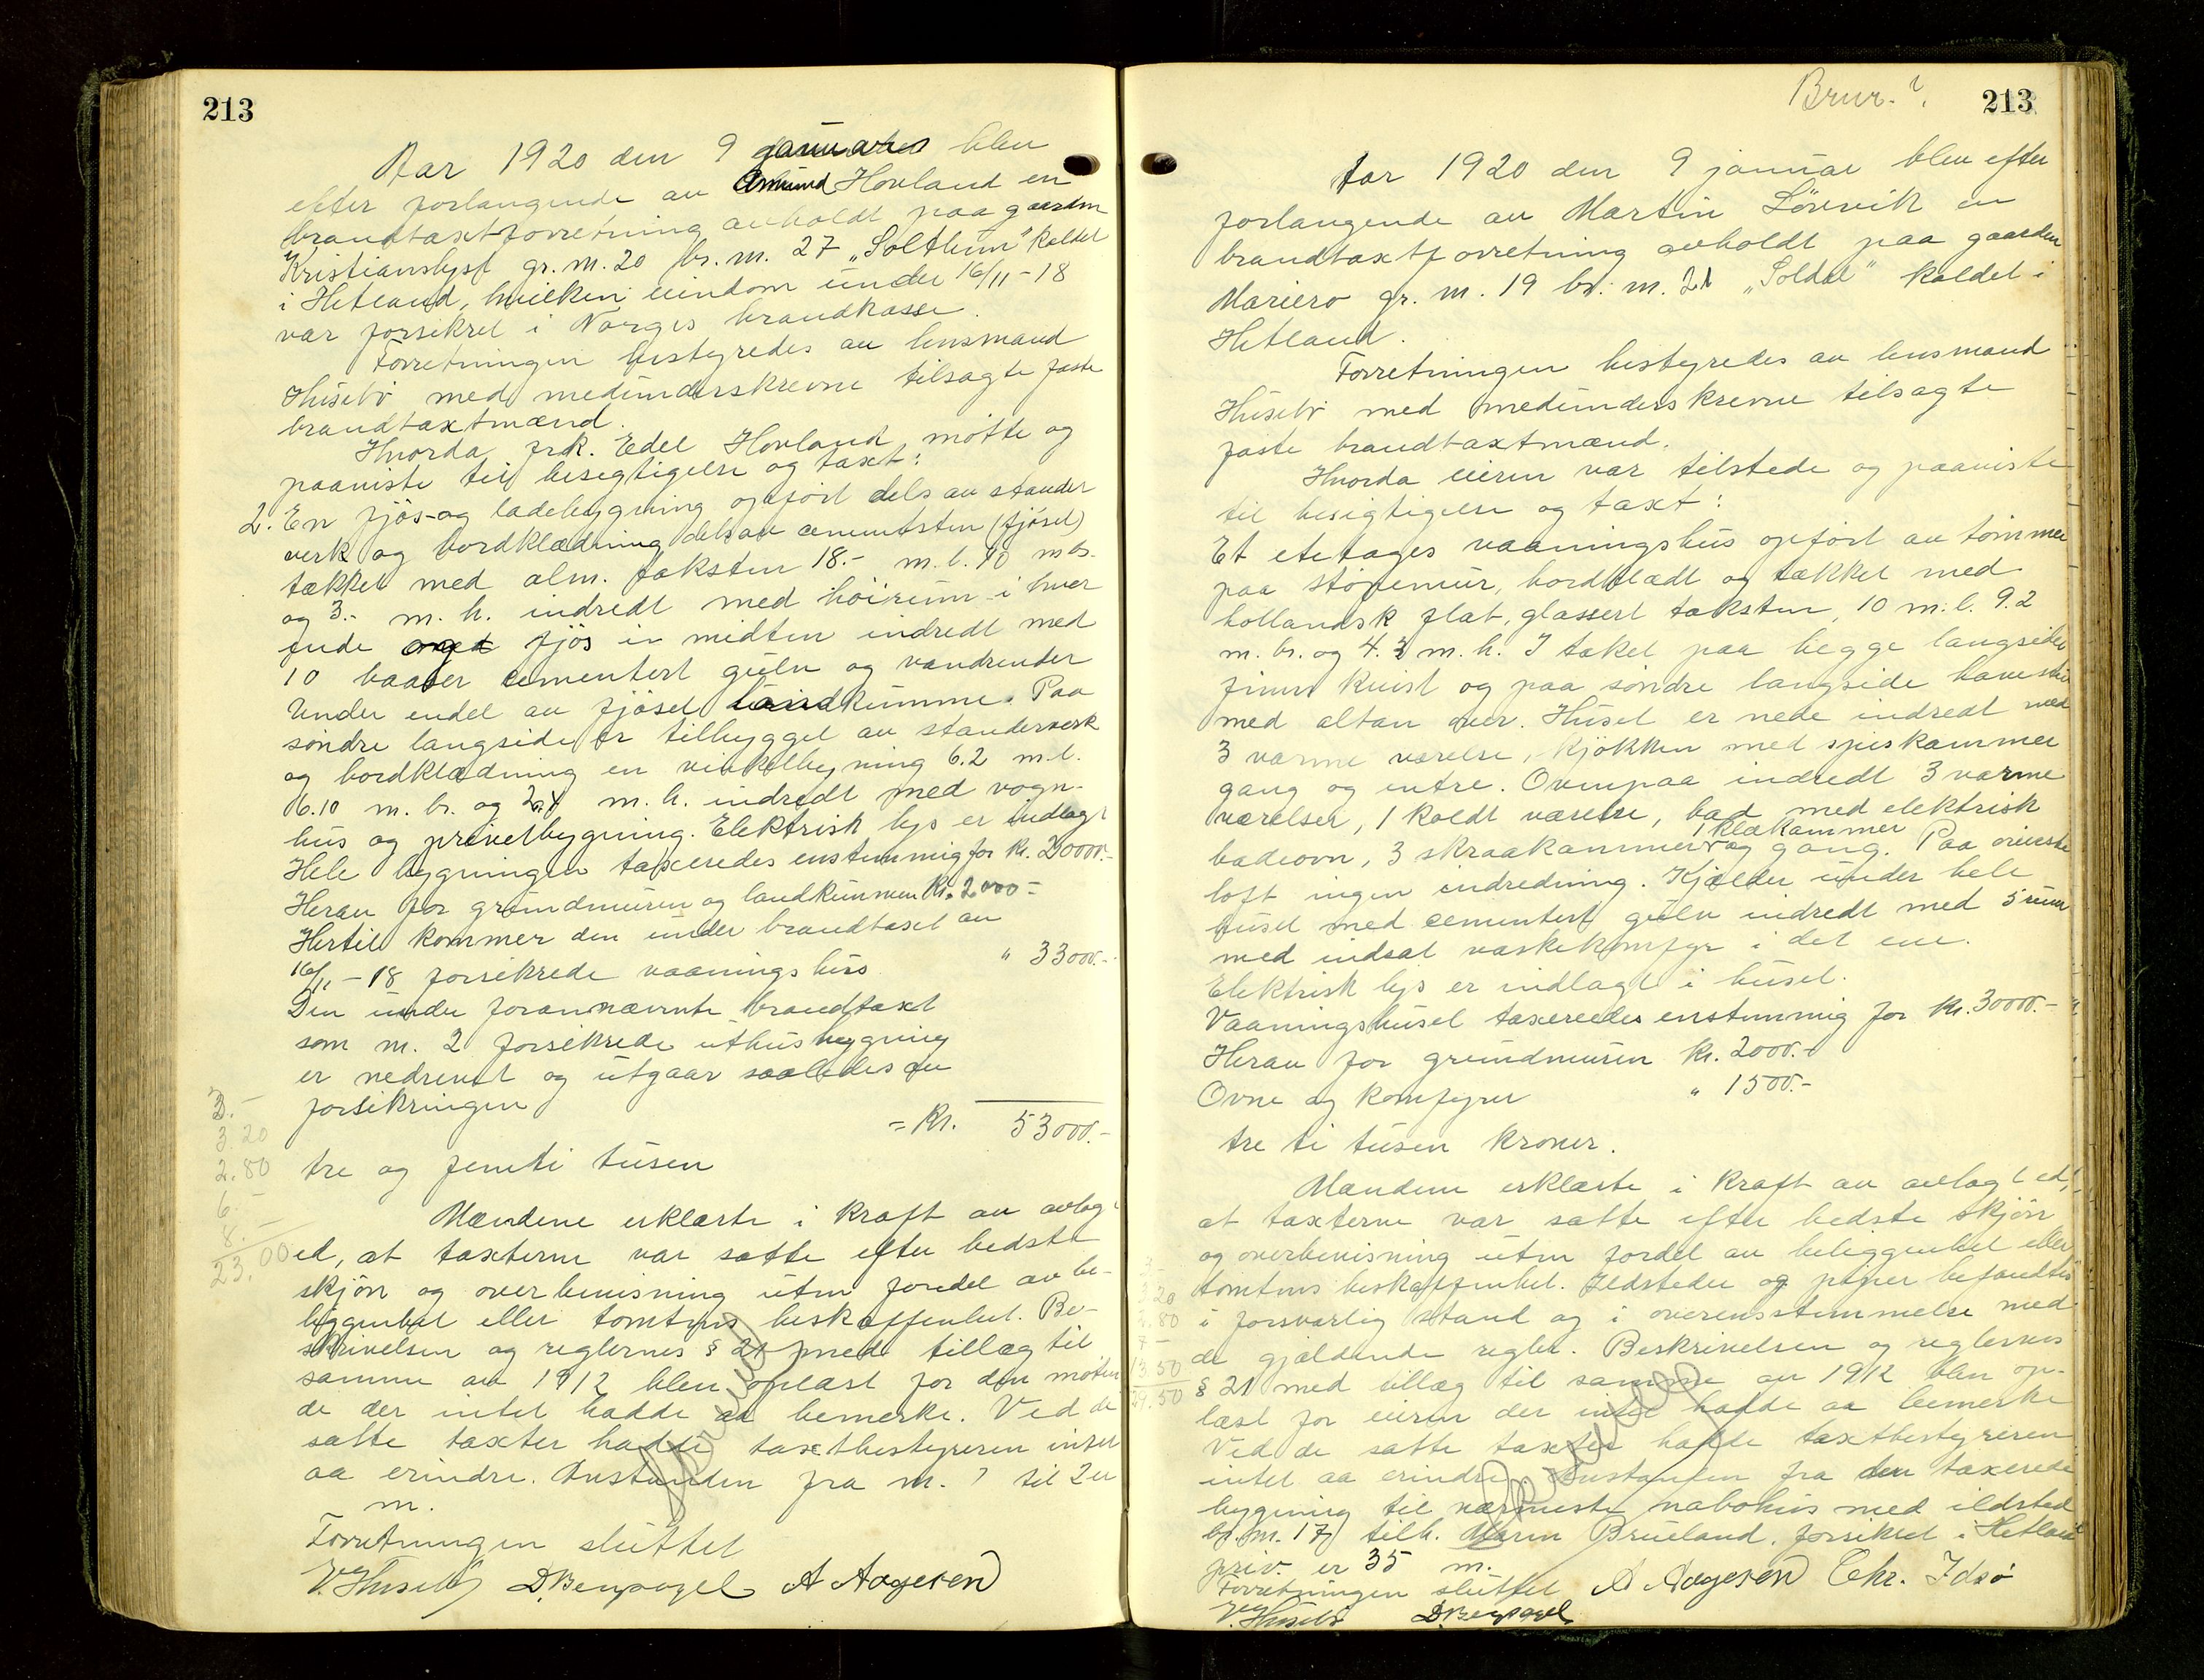 213
Aar 1920 den 9 januar blev
efter forlangende av Amund Hovland en
brandtaxtforretning avholdt paa gaarden
Kristianslyst gr. nr. 20 br. nr. 27 „Solthun" kaldet
i Hetland, hvilken eiendom under 16/11-18
var forsikret i Norges brandkasse.
Forretningen bestyredes av lensmand
Husebø med medunderskrevne tilsagte faste
brandtaxtmænd.
Hvorda frk. Edel Hovland møtte og
paaviste til besigtigelse og taxt:
2. En fjøs-og ladebygning opført dels av stander
verk og bordklædning dels av cementsten (fjøset)
tækket med alm. taksten 18.- m. l. 10 m br.
og 3.- m. h. indredt med høirum i hver
ende og fjøs i midten indredt med
10 baaser cementert gulv og vandrender
Under endel av fjøset landkumme. Paa
søndre langside er tilbygget av standerverk
og bordklædning en vinkelbygning 6.2 m.l.
6.10 m. br. og 2.4 m. h. indredt med vogn-
hus og privetbygning. Elektrisk lys er indlagt
Hele bygningen taxeredes enstemmig for kr. 20000.-
Herav for grundmuren og landkummen kr. 2000-
Hertil kommer den under brandtaxt av
16/11-18 forsikrede vaaningshus " 33000.-
Den under forannævnte brandtaxt
som nr. 2 forsikrede uthusbygning
er nedrevet og utgaar saaledes av
forsikringen
= Kr. 53000.-
tre og femti tusen
3.-
3.20
2.80
6.-
8.-
23.00
Mændene erklærte i kraft av avlagt
ed, at taxterne var satte efter bedste
skjøn og overbevisning uten fordel av be-
liggenhet eller tomtens beskaffenhet. Be-
skrivelsen og reglernes § 21 med tillæg til
samme av 1912 blev oplæst for den møten
de der intet hadde aa bemerke. Ved de
satte taxter hadde taxtbestyreren intet
aa erindre. Avstanden fra nr. 1 til 2 er
m.
Forretningen sluttet
V. Husebø D. Bengogel A Aagesen
Brur. ?.
213
Aar 1920 den 9 januar blev efter
forlangende av Martin Lövvik en
brandtaxtforretning avholdt paa gaarden
Mariero gr. nr. 19 br. nr. 21 „Soldal" kaldet i
Hetland.
Forretningen bestyredes av lensmand
Husebø med medunderskrevne tilsagte
faste brandtaxtmænd.
Hvorda eieren var tilstede og paaviste
til besigtigelse og taxt:
Et etetages vaaningshus opført av tømmer
paa støpemur, bordklædt og tækket med
hollandsk flat, glassert taksten, 10 m. l. 9.2
m. br. og 4.3 m. h. I taket paa begge langsider
finns kvist og paa søndre langside havestue
med altan over. Huset er nede indredt med
3 varme værelse, kjøkken med spiskammer
gang og entre. Ovenpaa indredt 3 varme
værelser, 1 koldt værelse, bad med elektrisk
badeovn, 3 skraakammer 1 klækammer og gang. Paa øverste
loft ingen indredning. Kjælder under hele
huset med cementert gulv indredt med 5 rum
med indsat vaskekomfyr i det ene.
Elektrisk lys er indlagt i huset.
Vaaningshuset taxeredes enstemmig for kr. 30000.-
Herav for grundmuren kr. 2000.-
Ovne og komfyrer " 1500.-
tre ti tusen kroner.
Mændene erklærte i kraft av avlagt ed,
at taxterne var satte efter bedste skjøn
og overbevisning uten fordel av beliggenhet eller
tomtens beskaffenhet. Ildsteder og piper befandtes
i forsvarlig stand og i overensstemmelse med
de gjældende regler. Beskrivelsen og reglernes
§ 21 med tillæg til samme av 1912 blev op-
læst for eieren der intet hadde aa bemerke
Ved de satte taxter hadde taxtbestyreren
intet aa erindre. Avstanden fra den taxerede
bygning til nærmeste nabohus med ildsted
br. nr. 17 tilh. Maren Brueland, forsikret i Hetland
priv. er 35 m.
Forretningen sluttet A Aagesen Chr. Idsø
V. Husebø D. Bengogel
3.20
2.80
7-
13.50
29.50